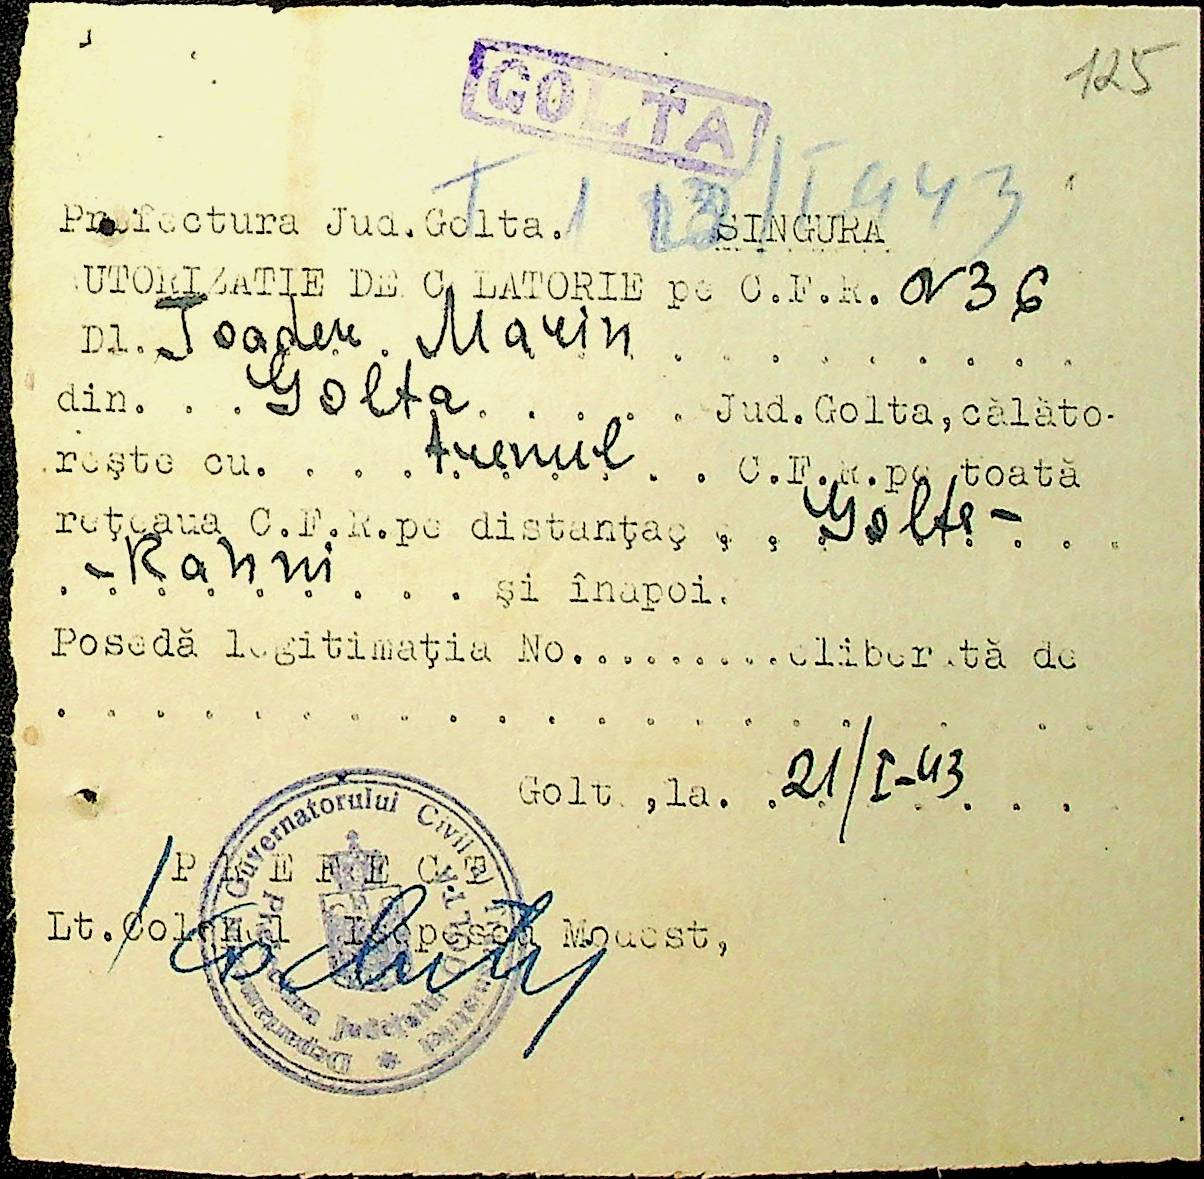 GOLTA
125
I 1943
Prefectura Jud.Golta. SINGURA
UTORIZATIE DE C LATORIE pe C.F.R. N 36
Dl. Toader Marin . . . . . . . .
din. . . . Golta . . . . . Jud.Golta,călăto-
reşte cu. . . . trenul . . . C.F.R.pe toată
reţeaua C.F.R.pe distanţaç ç . Golta- . . .
. -Kanni . . . şi înapoi.
Posedă legitimaţia No..........eliber tă de
. . . . . . . . . . . . . . . . . . . . .
Golt ,la. . 21/I-43 . . .
P R E F E C T
Lt.Colonel Isopescu Modest,
Guvernatorului Civil al Transnistriei * Departam
Prefectura Judeţului GOLTA